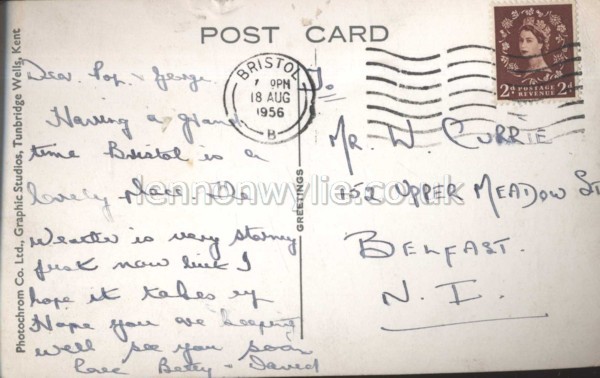 POST CARD
Photochrom Co. Ltd., Graphic Studios, Tunbridge Wells, Kent
GREETINGS
BRISTOL
PM
18 AUG
1956
B
2d POSTAGE REVENUE 2d
Dear Pop & George.
Having a grand
time Bristol is a
lovely place. De
Weather is very stormy
just now but I
hope it takes up
Hope you are keeping
well see you soon
love Betty & David
To
MR. W. CURRIE
152 UPPER MEADOW ST
BELFAST.
N. I.
lennonwylie.co.uk